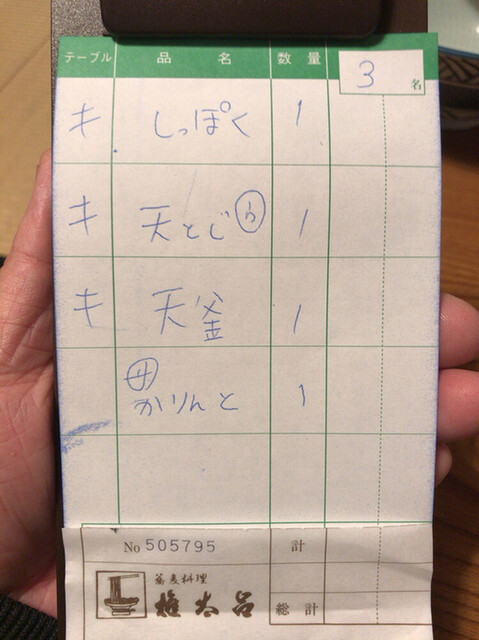 テーブル 品名 数量
3名
キ しっぽく 1
キ 天とじ う 1
キ 天釜 1
サ
かりんと 1
No 505795 計
蕎麦料理
権太呂 総計